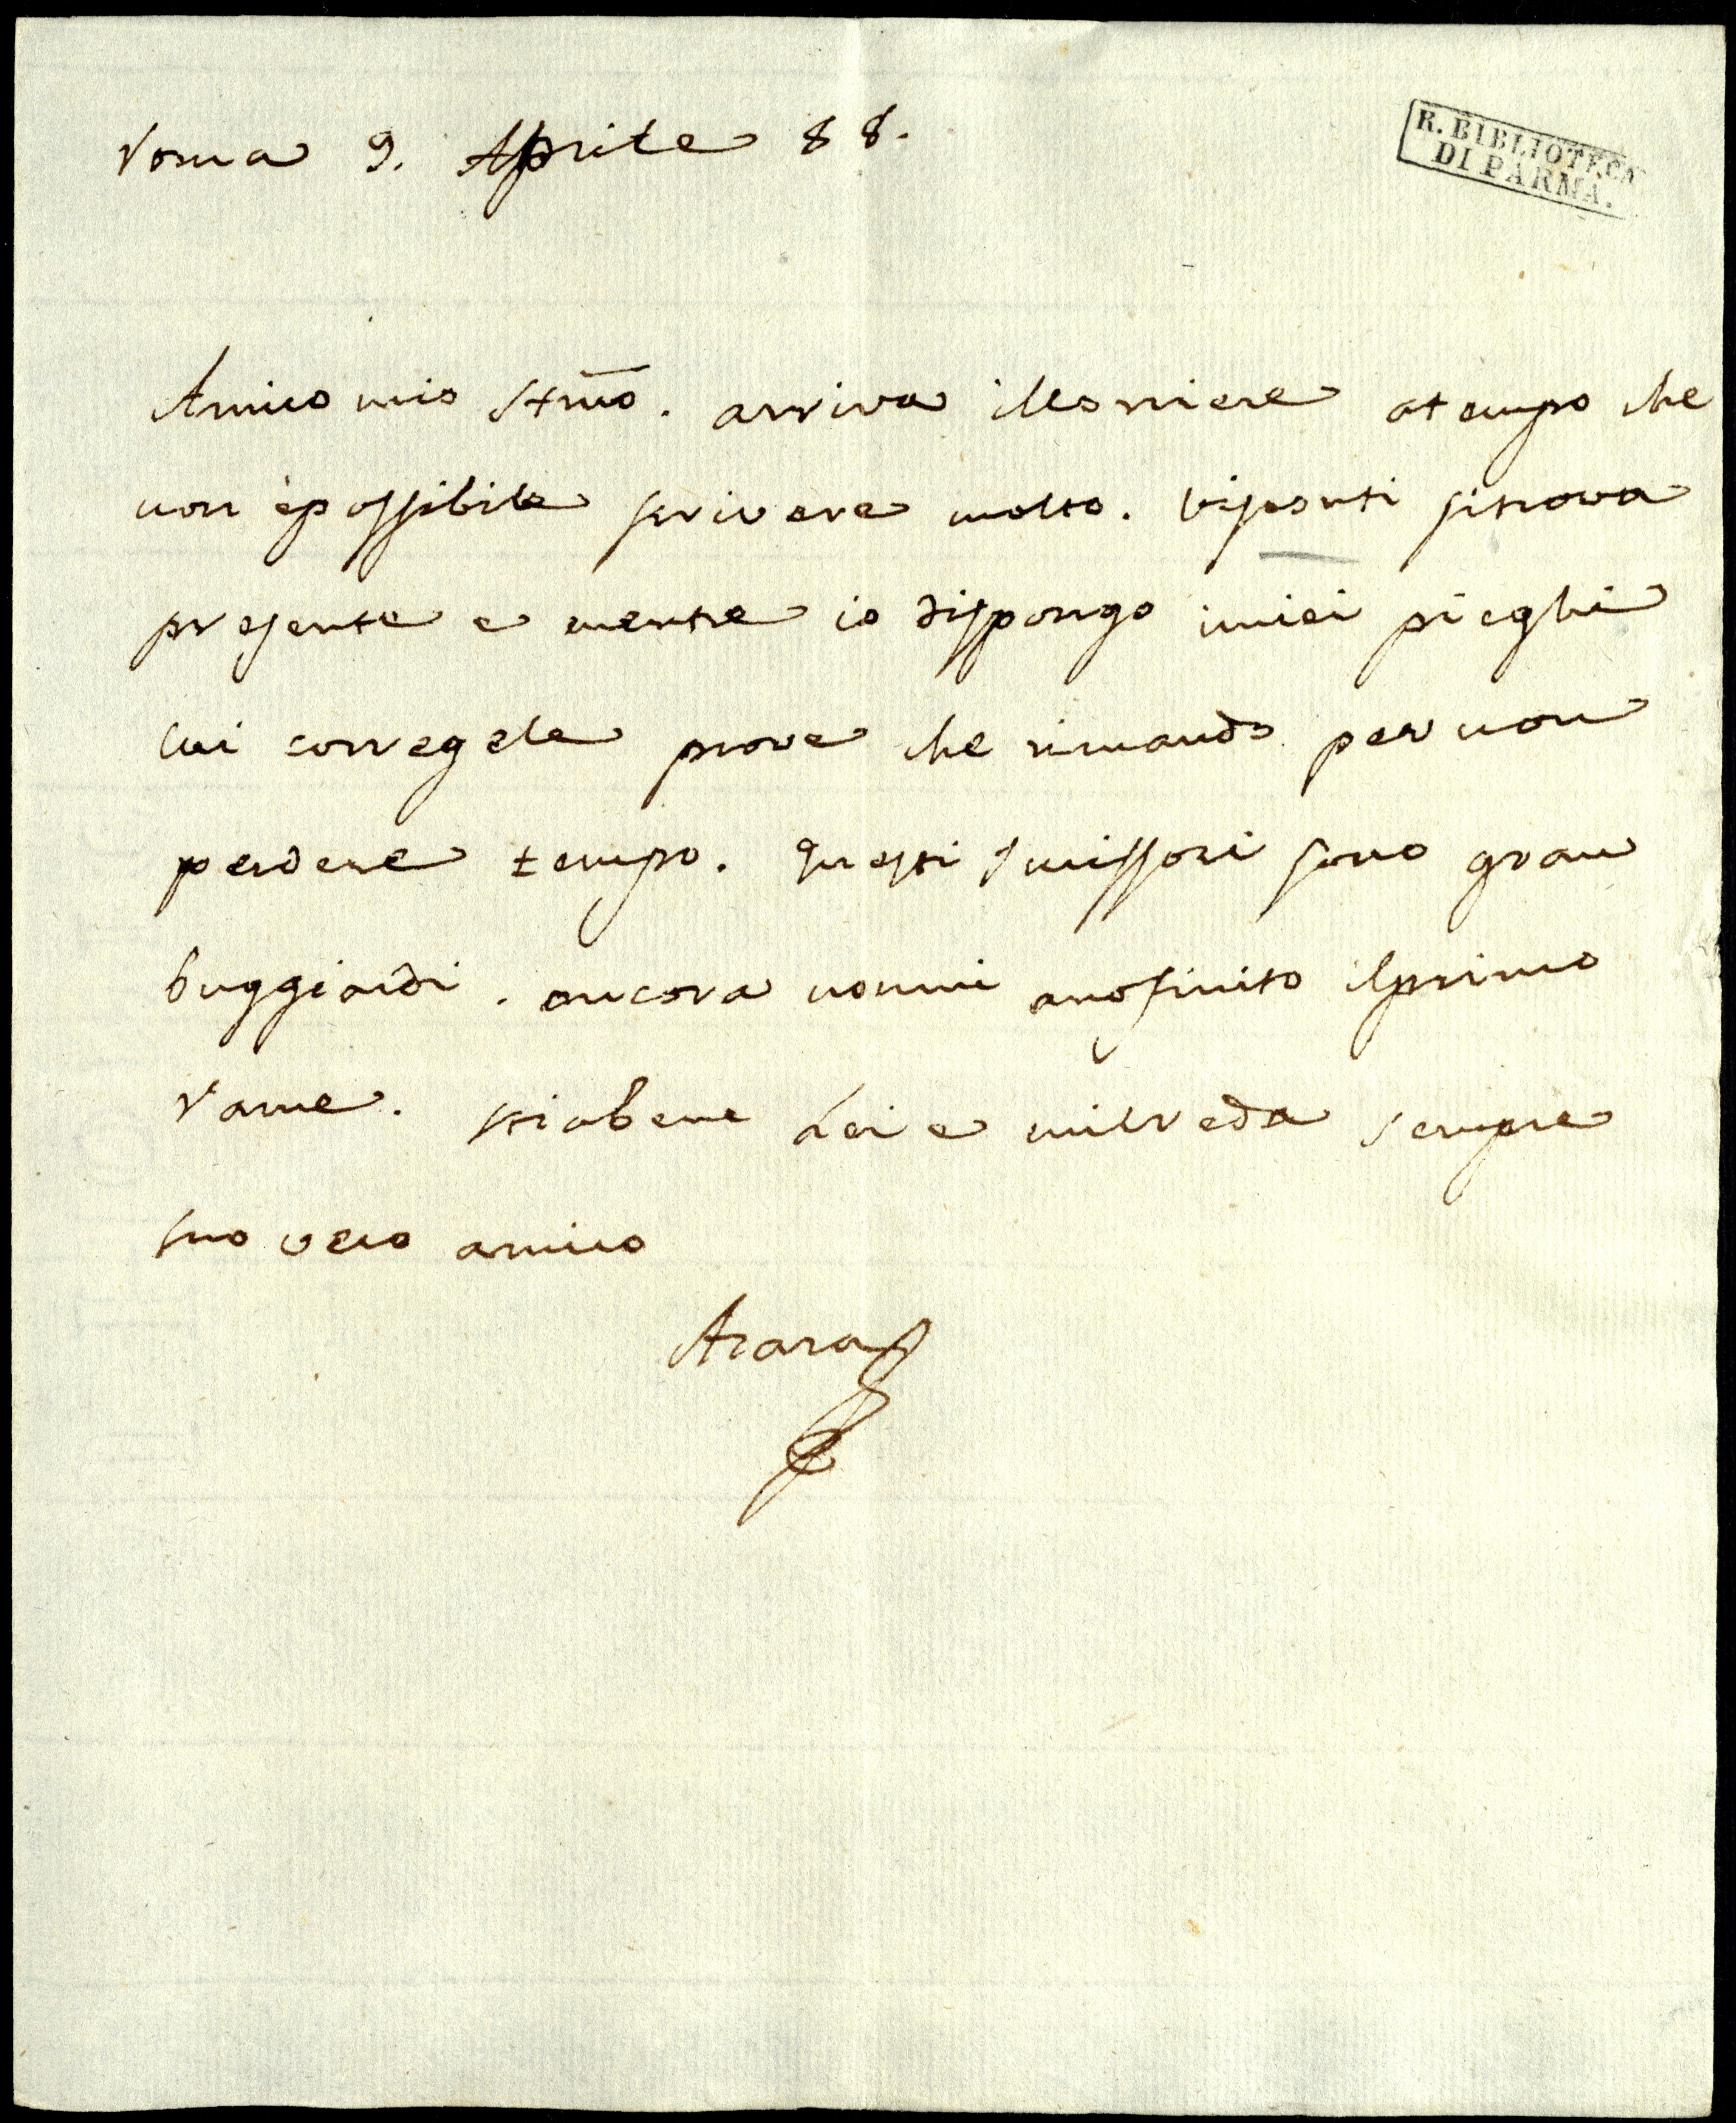 Roma 9. Aprile 88.
R. BIBLIOTECA
DI PARMA.
Amico mio Stmo. arriva ilCorriere atempo che
non èpossibile scrivere molto. Visconti sitrova
presente e mentre io dispongo imiei pieghi
lui corregele prove che rimando per non
perdere tempo. questi Incissori sono gran
buggiardi. ancora nonmi anofinito ilprimo
rame. stiabene Lei e micreda sempre
suo vero amico
Azara